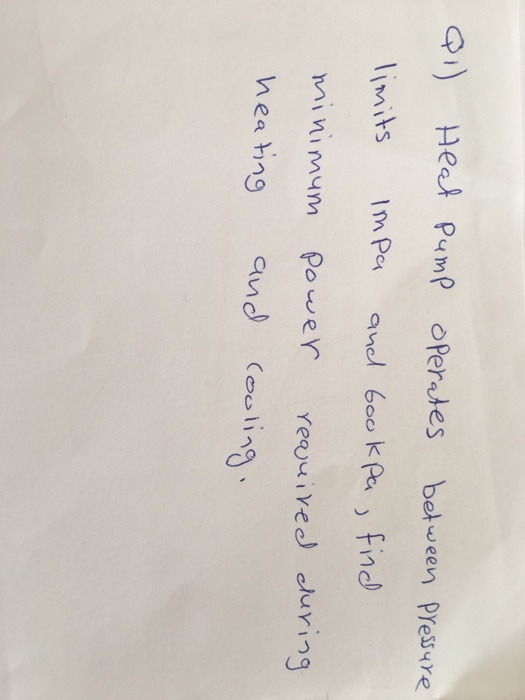 Q1) Heat pump operates between pressure
limits 1mpa and 600kpa, find
minimum power required during
heating and cooling.